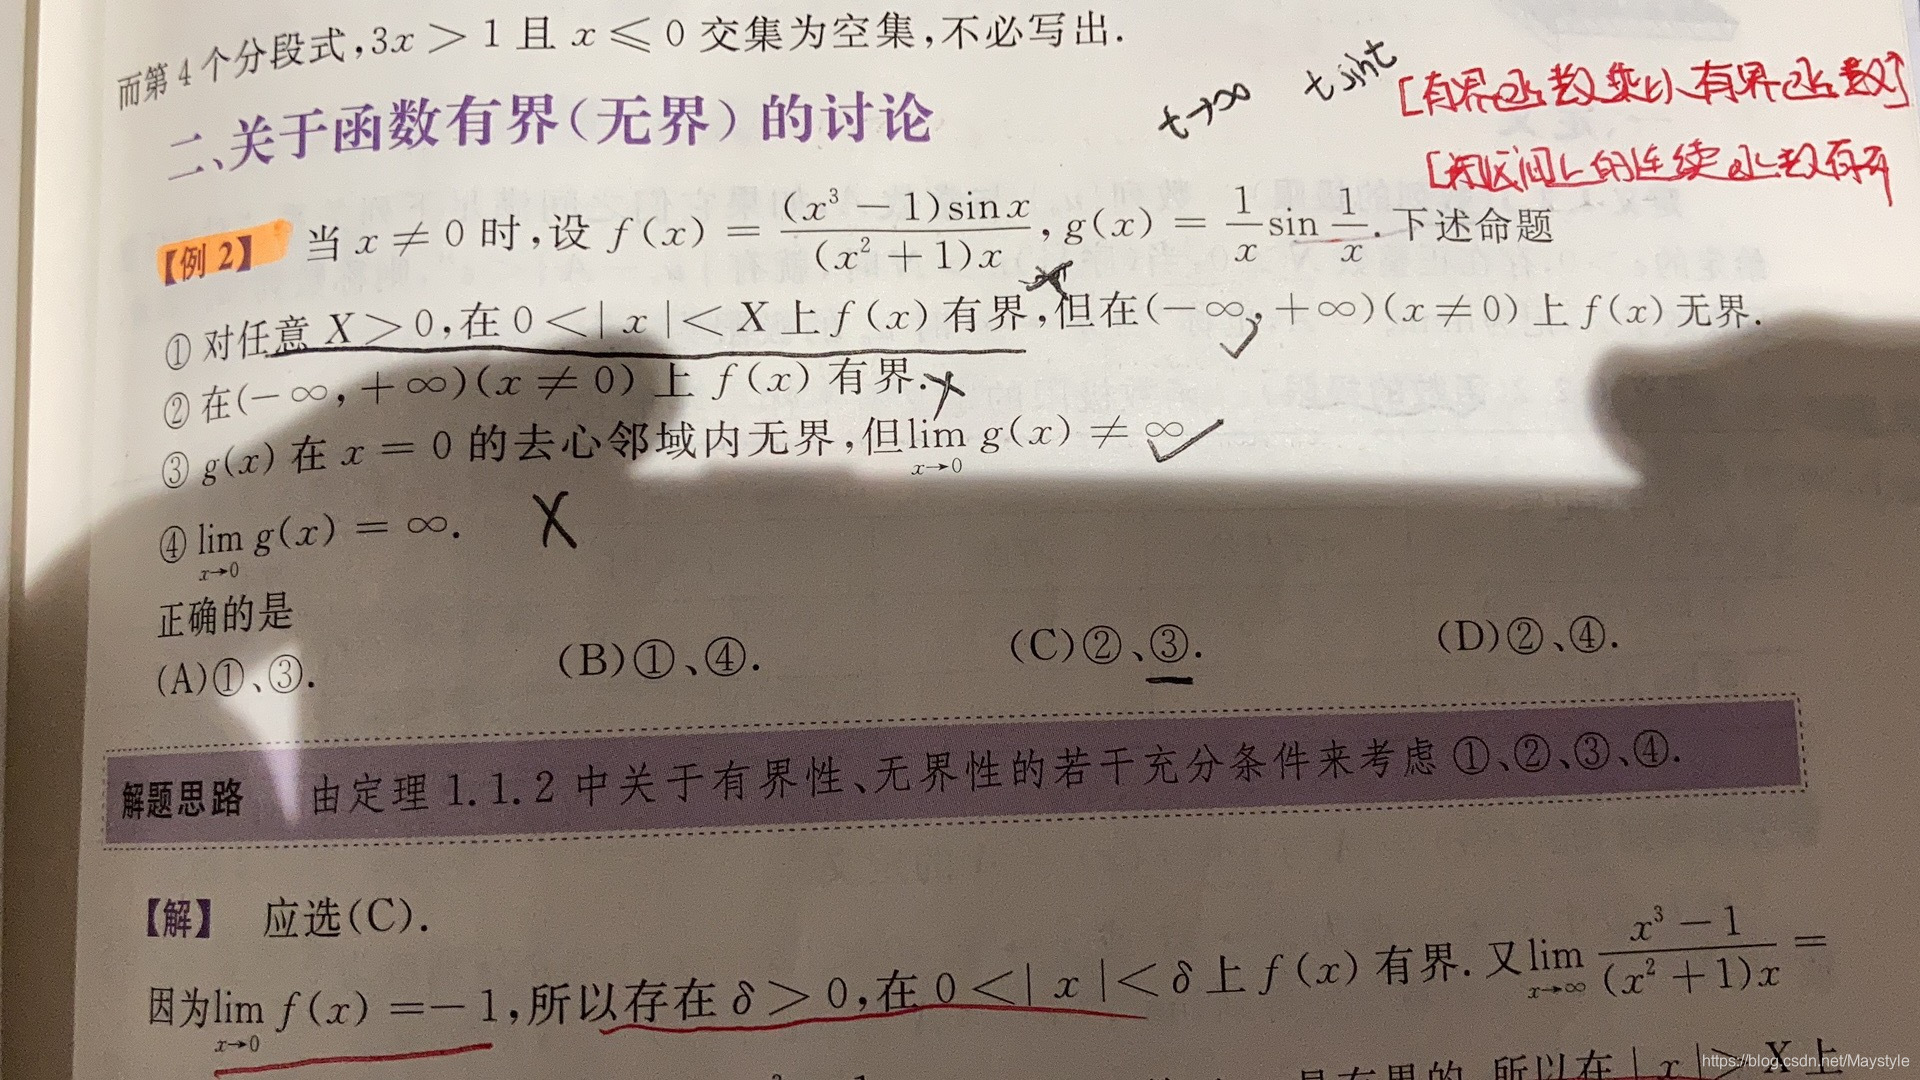 而第4个分段式,3x > 1 且 x ⩽ 0 交集为空集,不必写出.
t→∞ t sint
[有界函数乘以有界函数]
二、关于函数有界(无界)的讨论
[闭区间上的连续函数有界
【例2】 当 x ≠ 0 时,设 f(x) = (x³ − 1)sin x / (x² + 1)x , g(x) = 1/x sin 1/x . 下述命题
① 对任意 X > 0,在 0 < | x | < X 上 f(x) 有界,但在(−∞, +∞)(x ≠ 0) 上 f(x) 无界.
② 在(−∞, +∞)(x ≠ 0) 上 f(x) 有界.
③ g(x) 在 x = 0 的去心邻域内无界,但 lim x→0 g(x) ≠ ∞
④ lim x→0 g(x) = ∞.
正确的是
(A)①、③. (B)①、④. (C)②、③. (D)②、④.
解题思路 由定理 1.1.2 中关于有界性、无界性的若干充分条件来考虑 ①、②、③、④.
【解】 应选(C).
因为 lim x→0 f(x) = − 1,所以存在 δ > 0,在 0 < | x | < δ 上 f(x) 有界. 又 lim x→∞ x³ − 1 / (x² + 1)x =
是有界的,所以在 | x | > X 上
https://blog.csdn.net/Maystyle